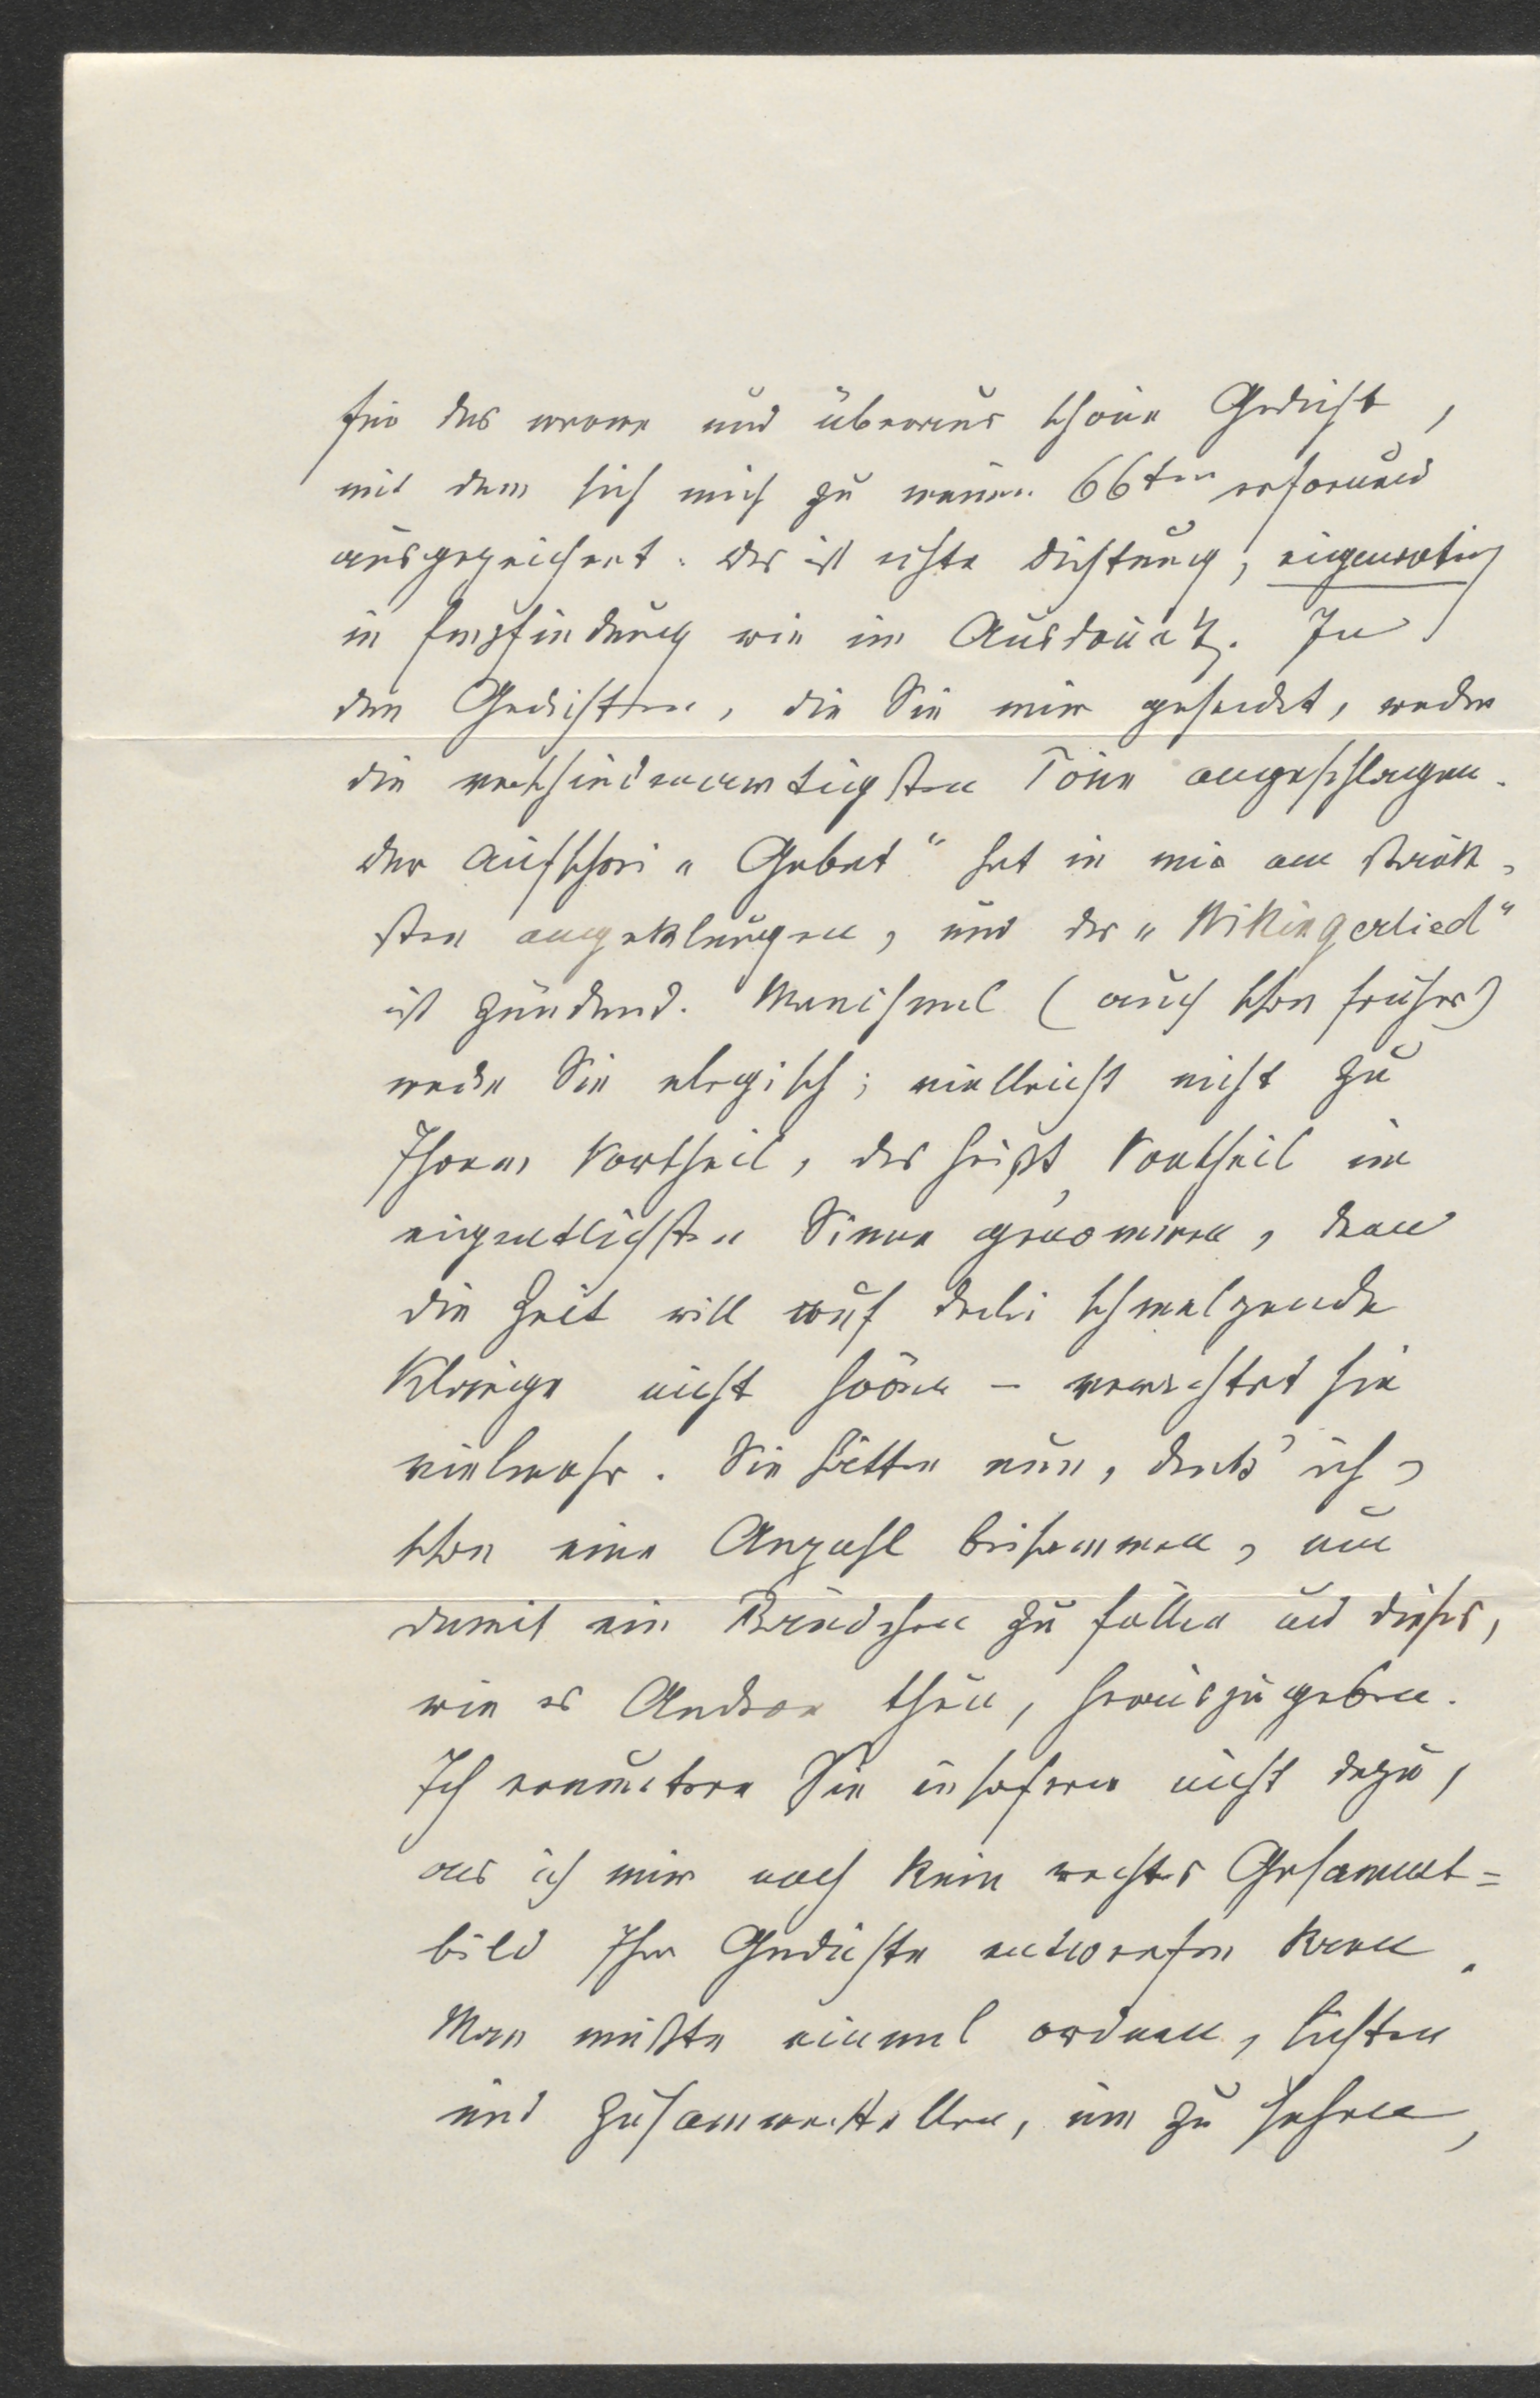 für das warme und überaus schöne Gedicht,
mit dem sich mich zu meinem 66ten erfreuend
ausgezeichnet. Das ist echte Dichtung, eigenartig
in Empfindung wie im Ausdruck. In
den Gedichten, die Sie mir gesendet, werden
die verschiedenartigsten Töne angeschlagen.
Der Aufschrei „Gebet" hat in mir am stärk-
sten angeklungen, und das „Wikingerlied"
ist zündend. Manchmal (auch schon früher)
werden Sie elegisch; vielleicht nicht zu
Ihrem Vortheil, das heißt, Vortheil im
eigentlichsten Sinne genommen, denn
die Zeit will auf derlei schmelzende
Klänge nicht hören – verachtet sie
vielmehr. Sie hätten nun, denk' ich,
schon eine Anzahl beisammen, um
damit ein Bändchen zu füllen und dieses,
wie es Andere thun, herauszugeben.
Ich ermuntere Sie insofern nicht dazu,
als ich mir noch kein rechtes Gesammt=
bild Ihrer Gedichte entwerfen kann.
Man müßte einmal ordnen, sichten
und zusammenstellen, um zu sehen,